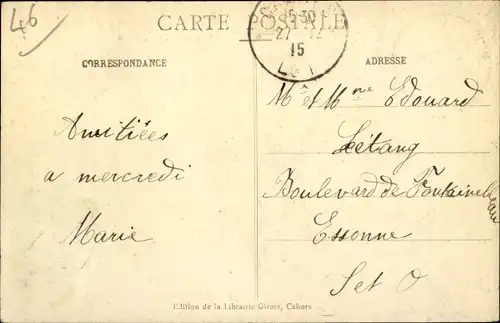 46
CARTE POSTALE
5·30
27
15
LOT
CORRESPONDANCE
ADRESSE
Amitiées
a mercredi
Marie
Mr et Mme Edouard
Létang
Boulevard de Fontainebleau
Essonne
S et O
Edition de la Librairie Girma, Cahors